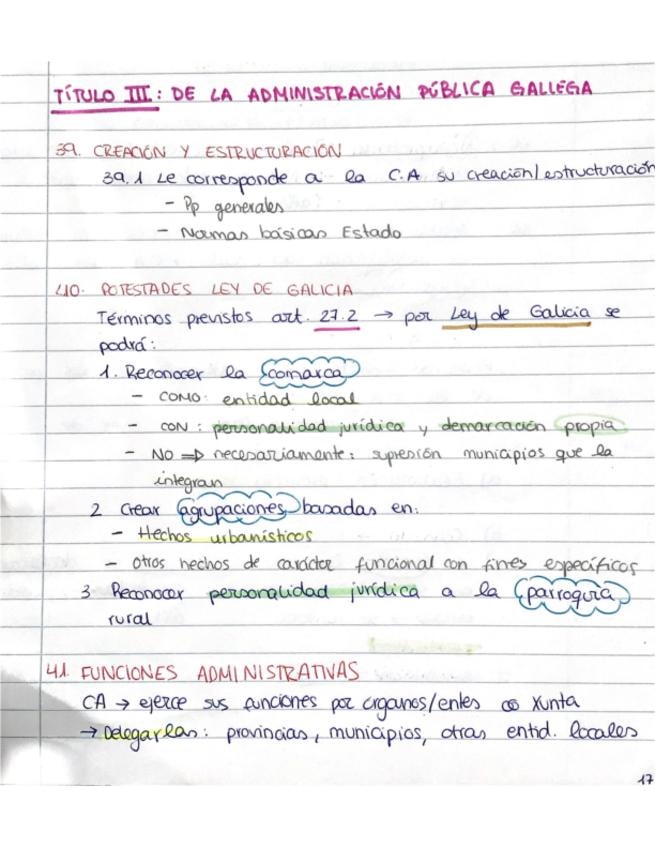 TÍTULO III: DE LA ADMINISTRACIÓN PÚBLICA GALLEGA
39. CREACIÓN Y ESTRUCTURACIÓN
39.1 Le corresponde a la C.A su creación/estructuración
- Pp generales
- Normas básicas Estado
40. POTESTADES LEY DE GALICIA
Términos previstos art. 27.2 → por Ley de Galicia se
podrá:
1. Reconocer la comarca
- COMO: entidad local
- CON: personalidad jurídica y demarcación propia
- NO ⇒ necesariamente: supresión municipios que la
integran
2 Crear agrupaciones basadas en:
- Hechos urbanísticos
- otros hechos de carácter funcional con fines específicos
3 Reconocer personalidad jurídica a la parroquia
rural
41. FUNCIONES ADMINISTRATIVAS
CA → ejerce sus funciones por órganos/entes Xunta
→ Delegarlas: provincias, municipios, otras entid. locales
17